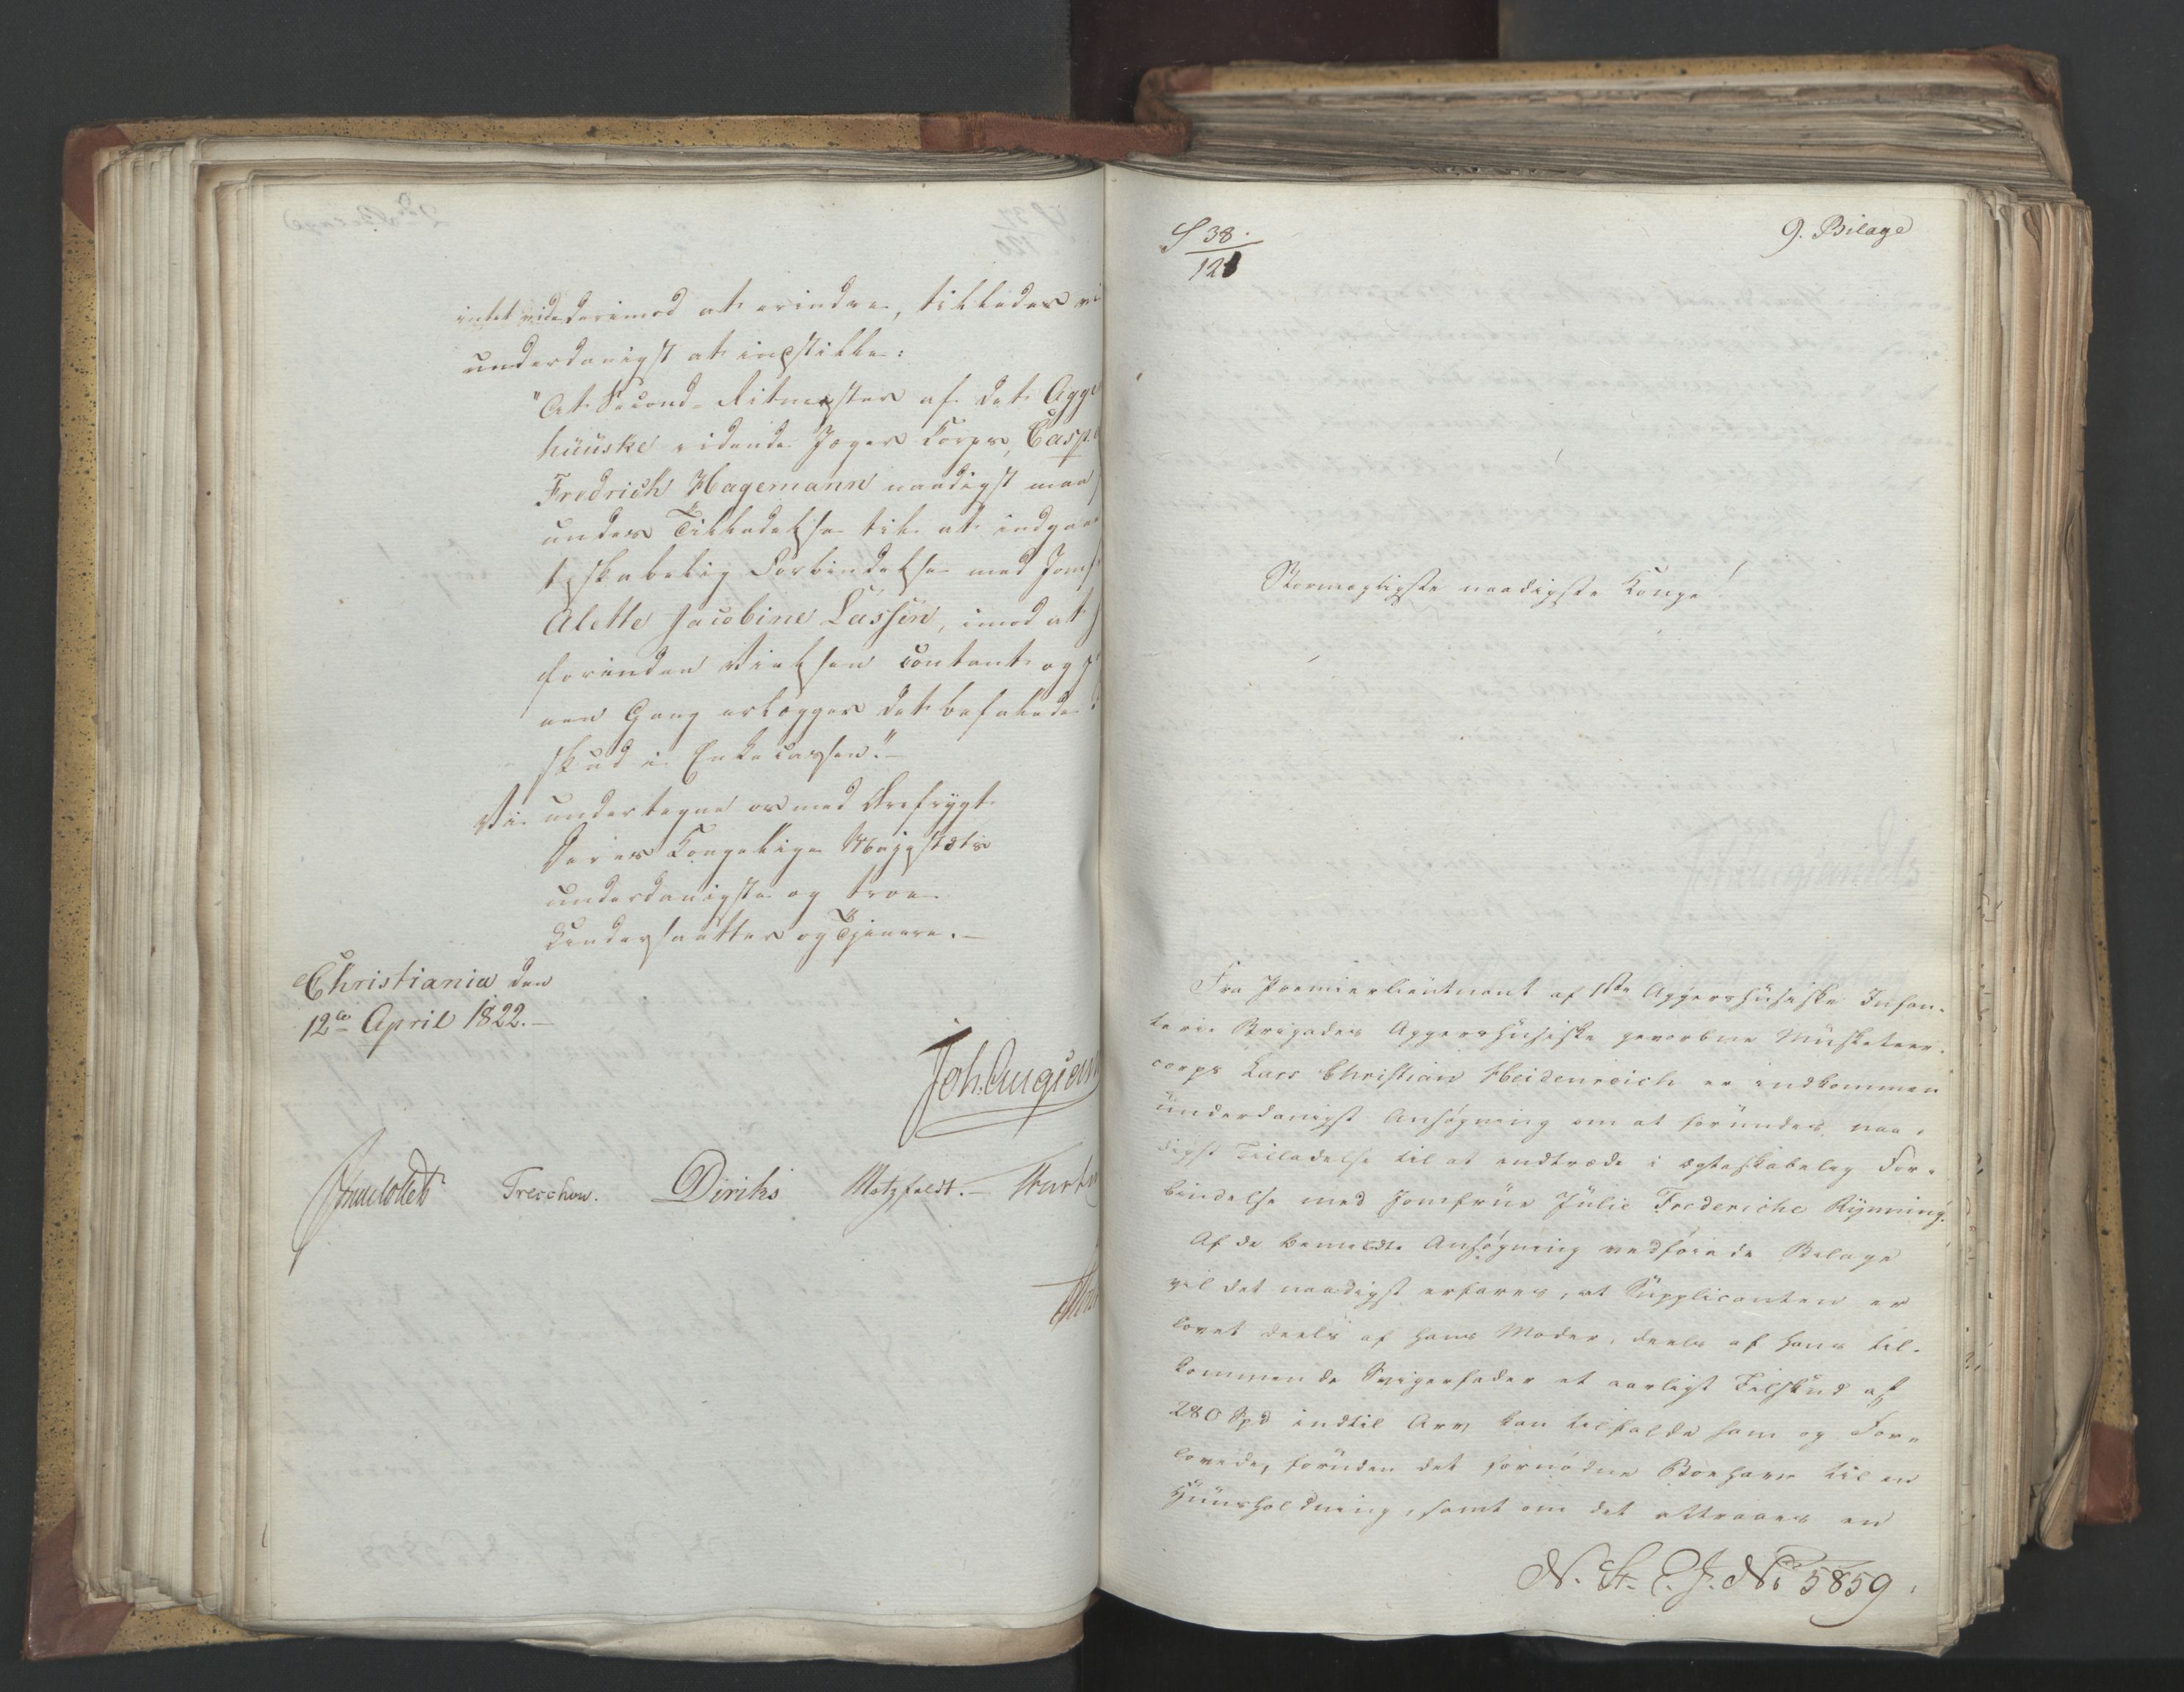 intet vide derimod at erindre, tillades vi
underdanigst at indstille:
"At Second-Ritmester af det Agge
huuske ridende Jæger Corps, Casp
Fredrich Hagemann naadigst maa
undes Tilladelse til at indgaae
tskabelig Forbindelse med Jomf
Alette Jacobine Lassen, imod at
forinden Vielsen contant og p
een Gang erlægger det befalede
skud i Enkecassen."-
Vi undertegne os med Ærefrygt
Deres Kongelige Majestæts
underdanigste og troe
Undersaatter og Tjenere.-
Christiania den
12te April 1822.-
Joh. Aug
Treschow. Diriks Motzfeldt.-
S 38.
121
9. Bilage
Stormægtigste naadigste Konge!
Fra Premierlieutnant af 1ste Aggershuusiske Infan-
terie Brigades Aggershuusiske gevorbne Musketeer-
corps Lars Christian Heidenreich er indkommen
underdanigst Ansøgning om at forundes naa-
digst Tilladelse til at indtræde i ægteskabelig For-
bindelse med Jomfrue Julie Frederiche Rynning.
Af de bemeldte Ansøgning vedføiede Bilage
vil det naadigst erfares, at Supplicanten er
lovet deels af hans Moder, deels af hans til-
kommende Svigerfader et aarligt Tilskud af
280 Spd indtil Arv kan tilfalde ham og For-
lovede, foruden det fornødne Boehave til en
Huusholdning, samt om det attraaes en
N. St. C. J. No 5859.